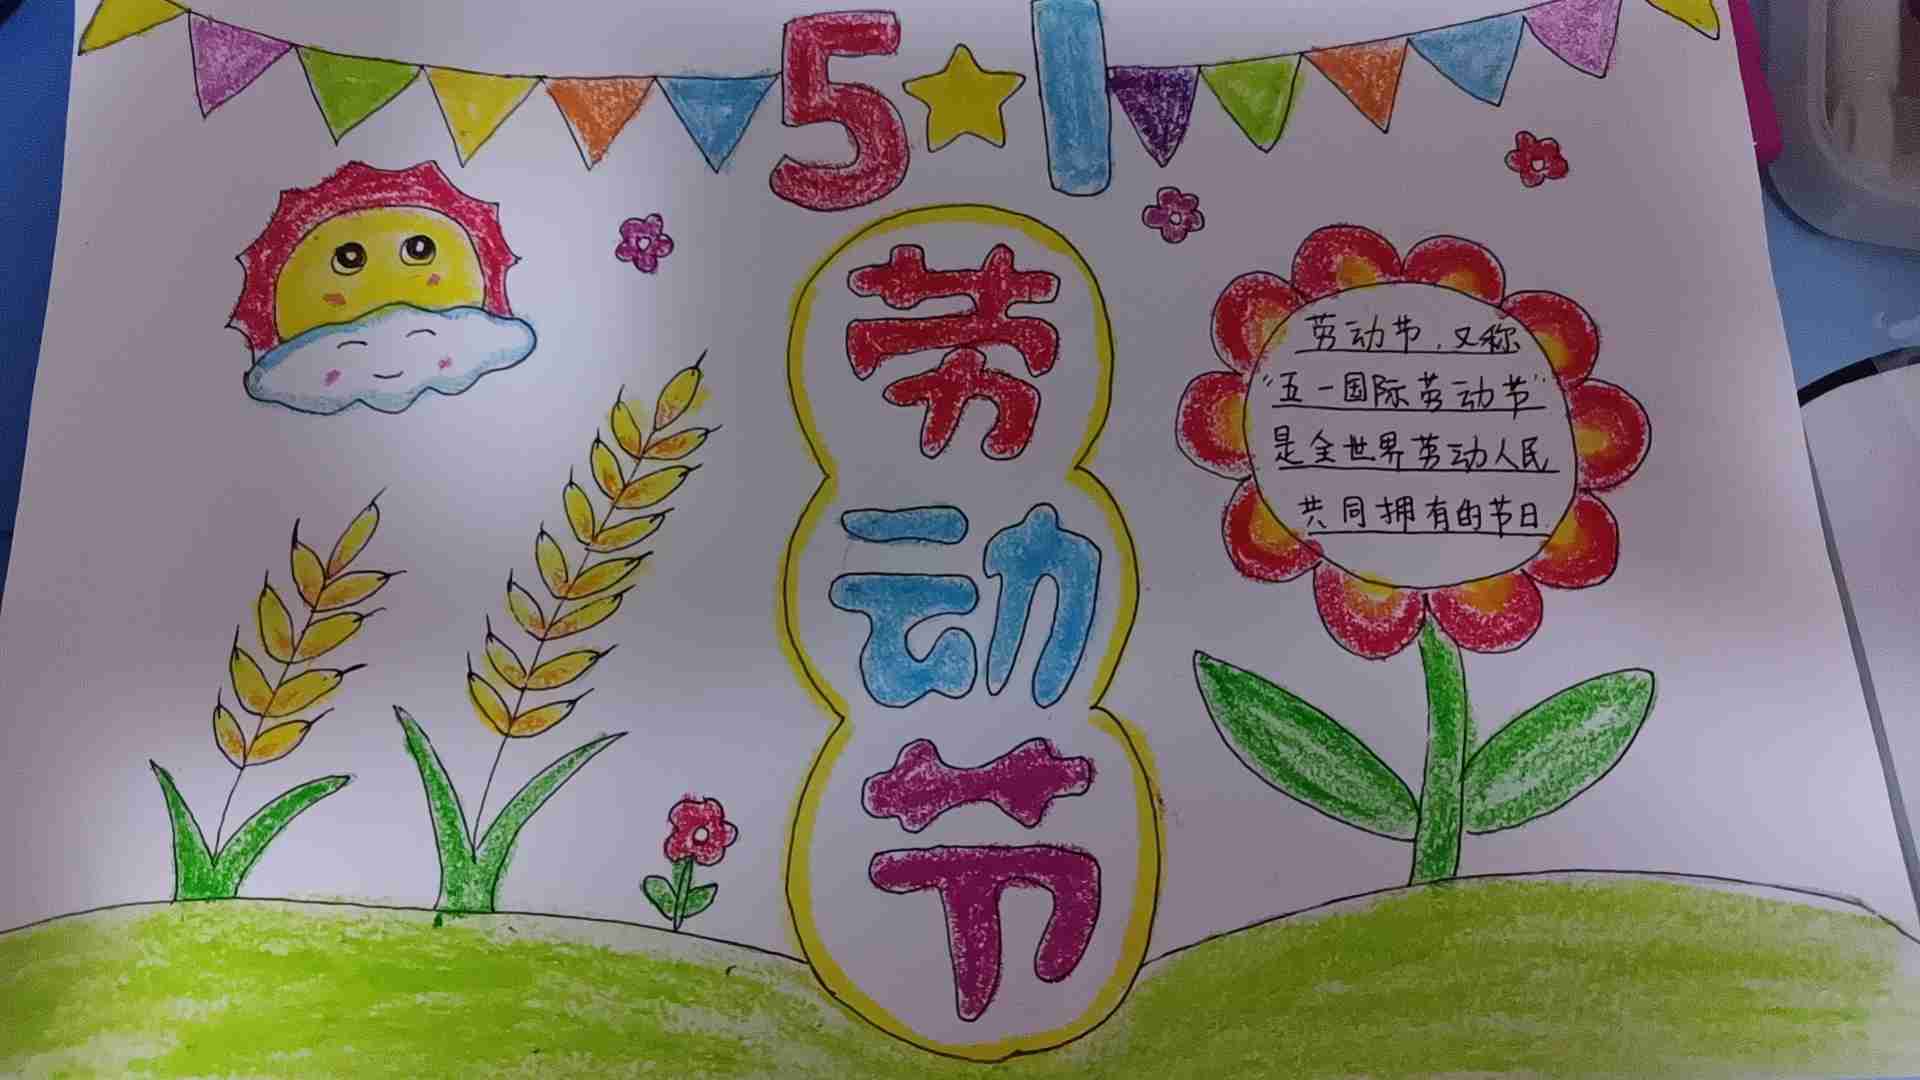 5★1
劳
动
节
劳动节，又称
“五一国际劳动节”
是全世界劳动人民
共同拥有的节日.